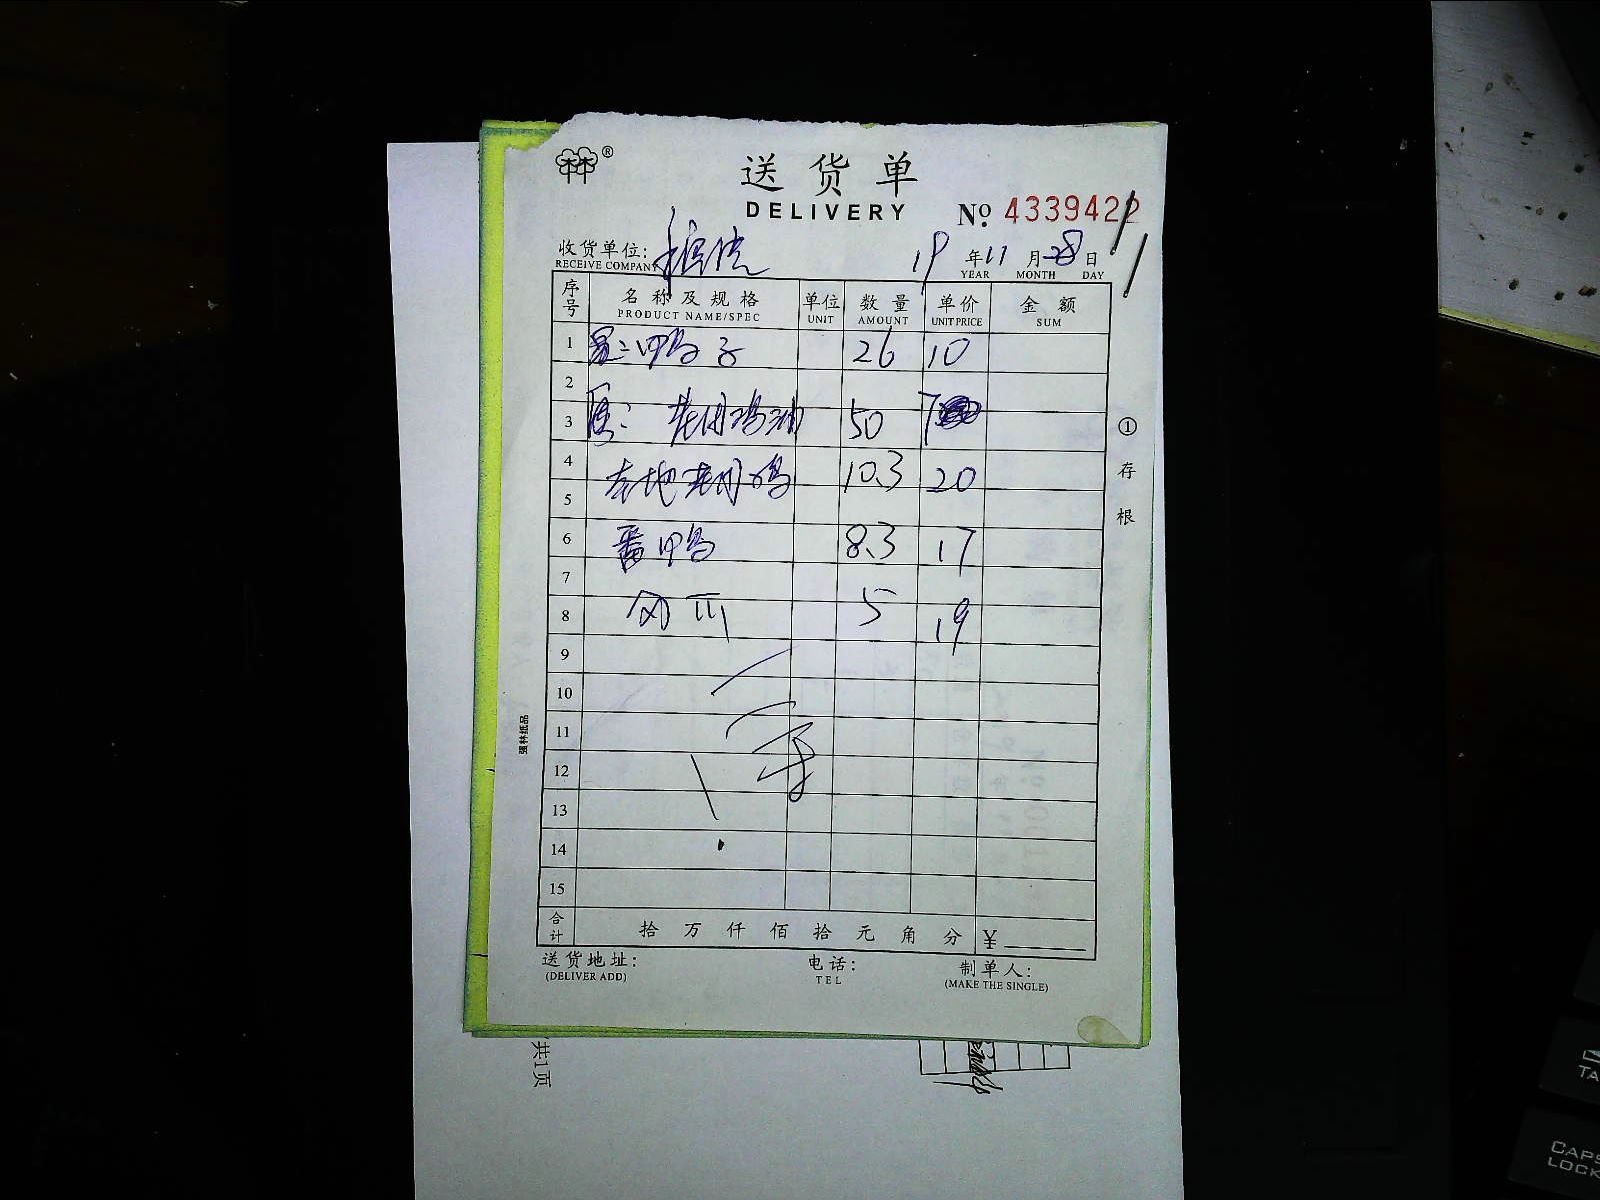 林®
送货单
DELIVERY
№ 4339422
收货单位:
RECEIVE COMPANY
19 年 11 月 28 日
YEAR MONTH DAY
序号 名称及规格 单位 数量 单价 金额
PRODUCT NAME/SPEC UNIT AMOUNT UNIT PRICE SUM
1 鸭子 26 10
2
3 50 7
4 本地 10.3 20
5
6 番鸭 8.3 17
7
8 5 19
9
10
11
12
13
14
15
合计 拾 万 仟 佰 拾 元 角 分 ¥
送货地址: 电话: 制单人:
(DELIVER ADD) TEL (MAKE THE SINGLE)
①存根
强林纸品
共1页
CAPS
LOCK